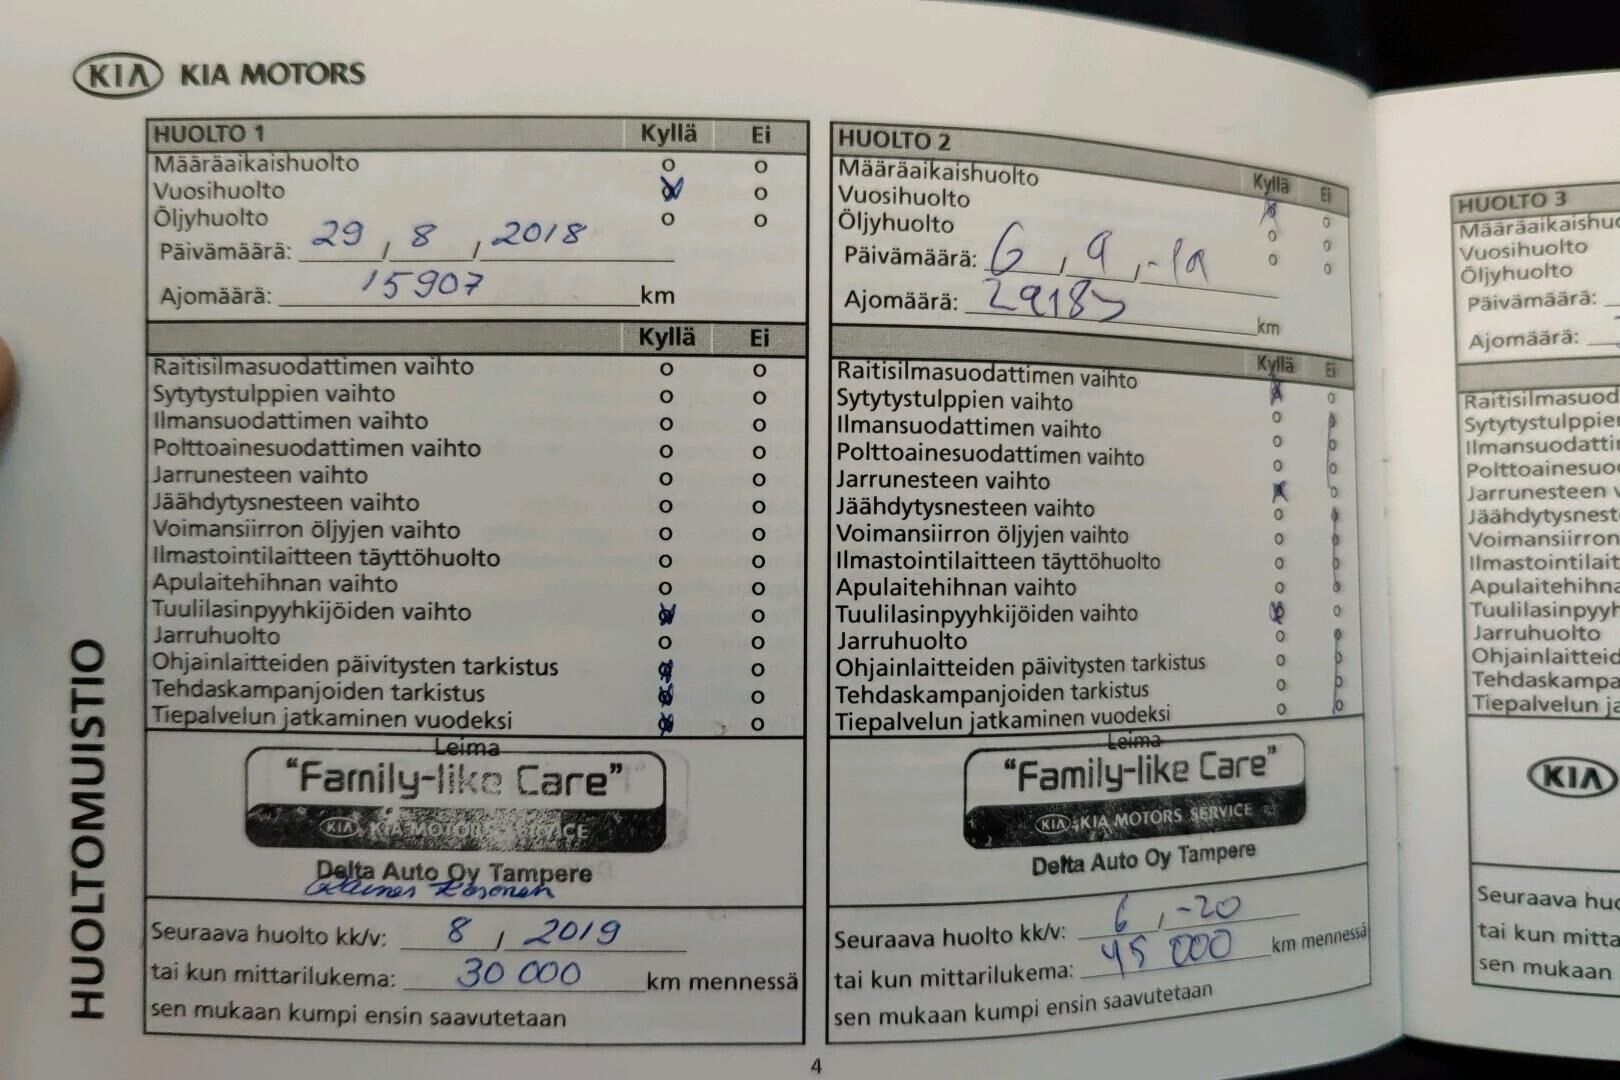 KIA KIA MOTORS
HUOLTOMUISTIO
HUOLTO 1 Kyllä Ei
Määräaikaishuolto o o
Vuosihuolto o o
Öljyhuolto o o
Päivämäärä: 29 / 8 / 2018
Ajomäärä: 15907 km
Kyllä Ei
Raitisilmasuodattimen vaihto o o
Sytytystulppien vaihto o o
Ilmansuodattimen vaihto o o
Polttoainesuodattimen vaihto o o
Jarrunesteen vaihto o o
Jäähdytysnesteen vaihto o o
Voimansiirron öljyjen vaihto o o
Ilmastointilaitteen täyttöhuolto o o
Apulaitehihnan vaihto o o
Tuulilasinpyyhkijöiden vaihto o o
Jarruhuolto o o
Ohjainlaitteiden päivitysten tarkistus o o
Tehdaskampanjoiden tarkistus o o
Tiepalvelun jatkaminen vuodeksi o o
Leima
"Family-like Care"
KIA KIA MOTORS SERVICE
Delta Auto Oy Tampere
Seuraava huolto kk/v: 8 / 2019
tai kun mittarilukema: 30 000 km mennessä
sen mukaan kumpi ensin saavutetaan
HUOLTO 2 Kyllä Ei
Määräaikaishuolto o o
Vuosihuolto o o
Öljyhuolto o o
Päivämäärä: 6 / 9 / -19
Ajomäärä: km
Kyllä Ei
Raitisilmasuodattimen vaihto o o
Sytytystulppien vaihto o o
Ilmansuodattimen vaihto o o
Polttoainesuodattimen vaihto o o
Jarrunesteen vaihto o o
Jäähdytysnesteen vaihto o o
Voimansiirron öljyjen vaihto o o
Ilmastointilaitteen täyttöhuolto o o
Apulaitehihnan vaihto o o
Tuulilasinpyyhkijöiden vaihto o o
Jarruhuolto o o
Ohjainlaitteiden päivitysten tarkistus o o
Tehdaskampanjoiden tarkistus o o
Tiepalvelun jatkaminen vuodeksi o o
Leima
"Family-like Care"
KIA KIA MOTORS SERVICE
Delta Auto Oy Tampere
Seuraava huolto kk/v: 6 / -20
tai kun mittarilukema: 45 000 km mennessä
sen mukaan kumpi ensin saavutetaan
4
HUOLTO 3
Määräaikaishuo
Vuosihuolto
Öljyhuolto
Päivämäärä:
Ajomäärä:
Raitisilmasuod
Sytytystulppien
Ilmansuodattin
Polttoainesuo
Jarrunesteen v
Jäähdytysnest
Voimansiirron
Ilmastointilait
Apulaitehihna
Tuulilasinpyyh
Jarruhuolto
Ohjainlaitteid
Tehdaskampa
Tiepalvelun ja
KIA
Seuraava huo
tai kun mitta
sen mukaan